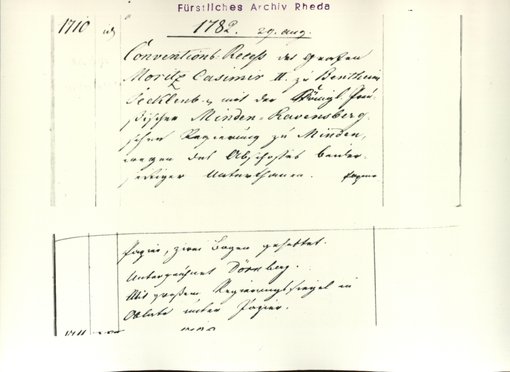 Fürstliches Archiv Rheda
1710
1782. 29. Aug.
Conventions-Receß des Grafen
Moritz Casimir II. zu Bentheim
Tecklenb. mit der Königl. Preu
ßischen Minden-Ravensberg
schen Regierung zu Minden,
wegen des Abschosses beider
seitiger Unterthanen.
Papier, zwei Bogen geheftet.
Unterzeichnet Dörnberg.
Mit großem Regierungssiegel in
Oblate unter Papier.